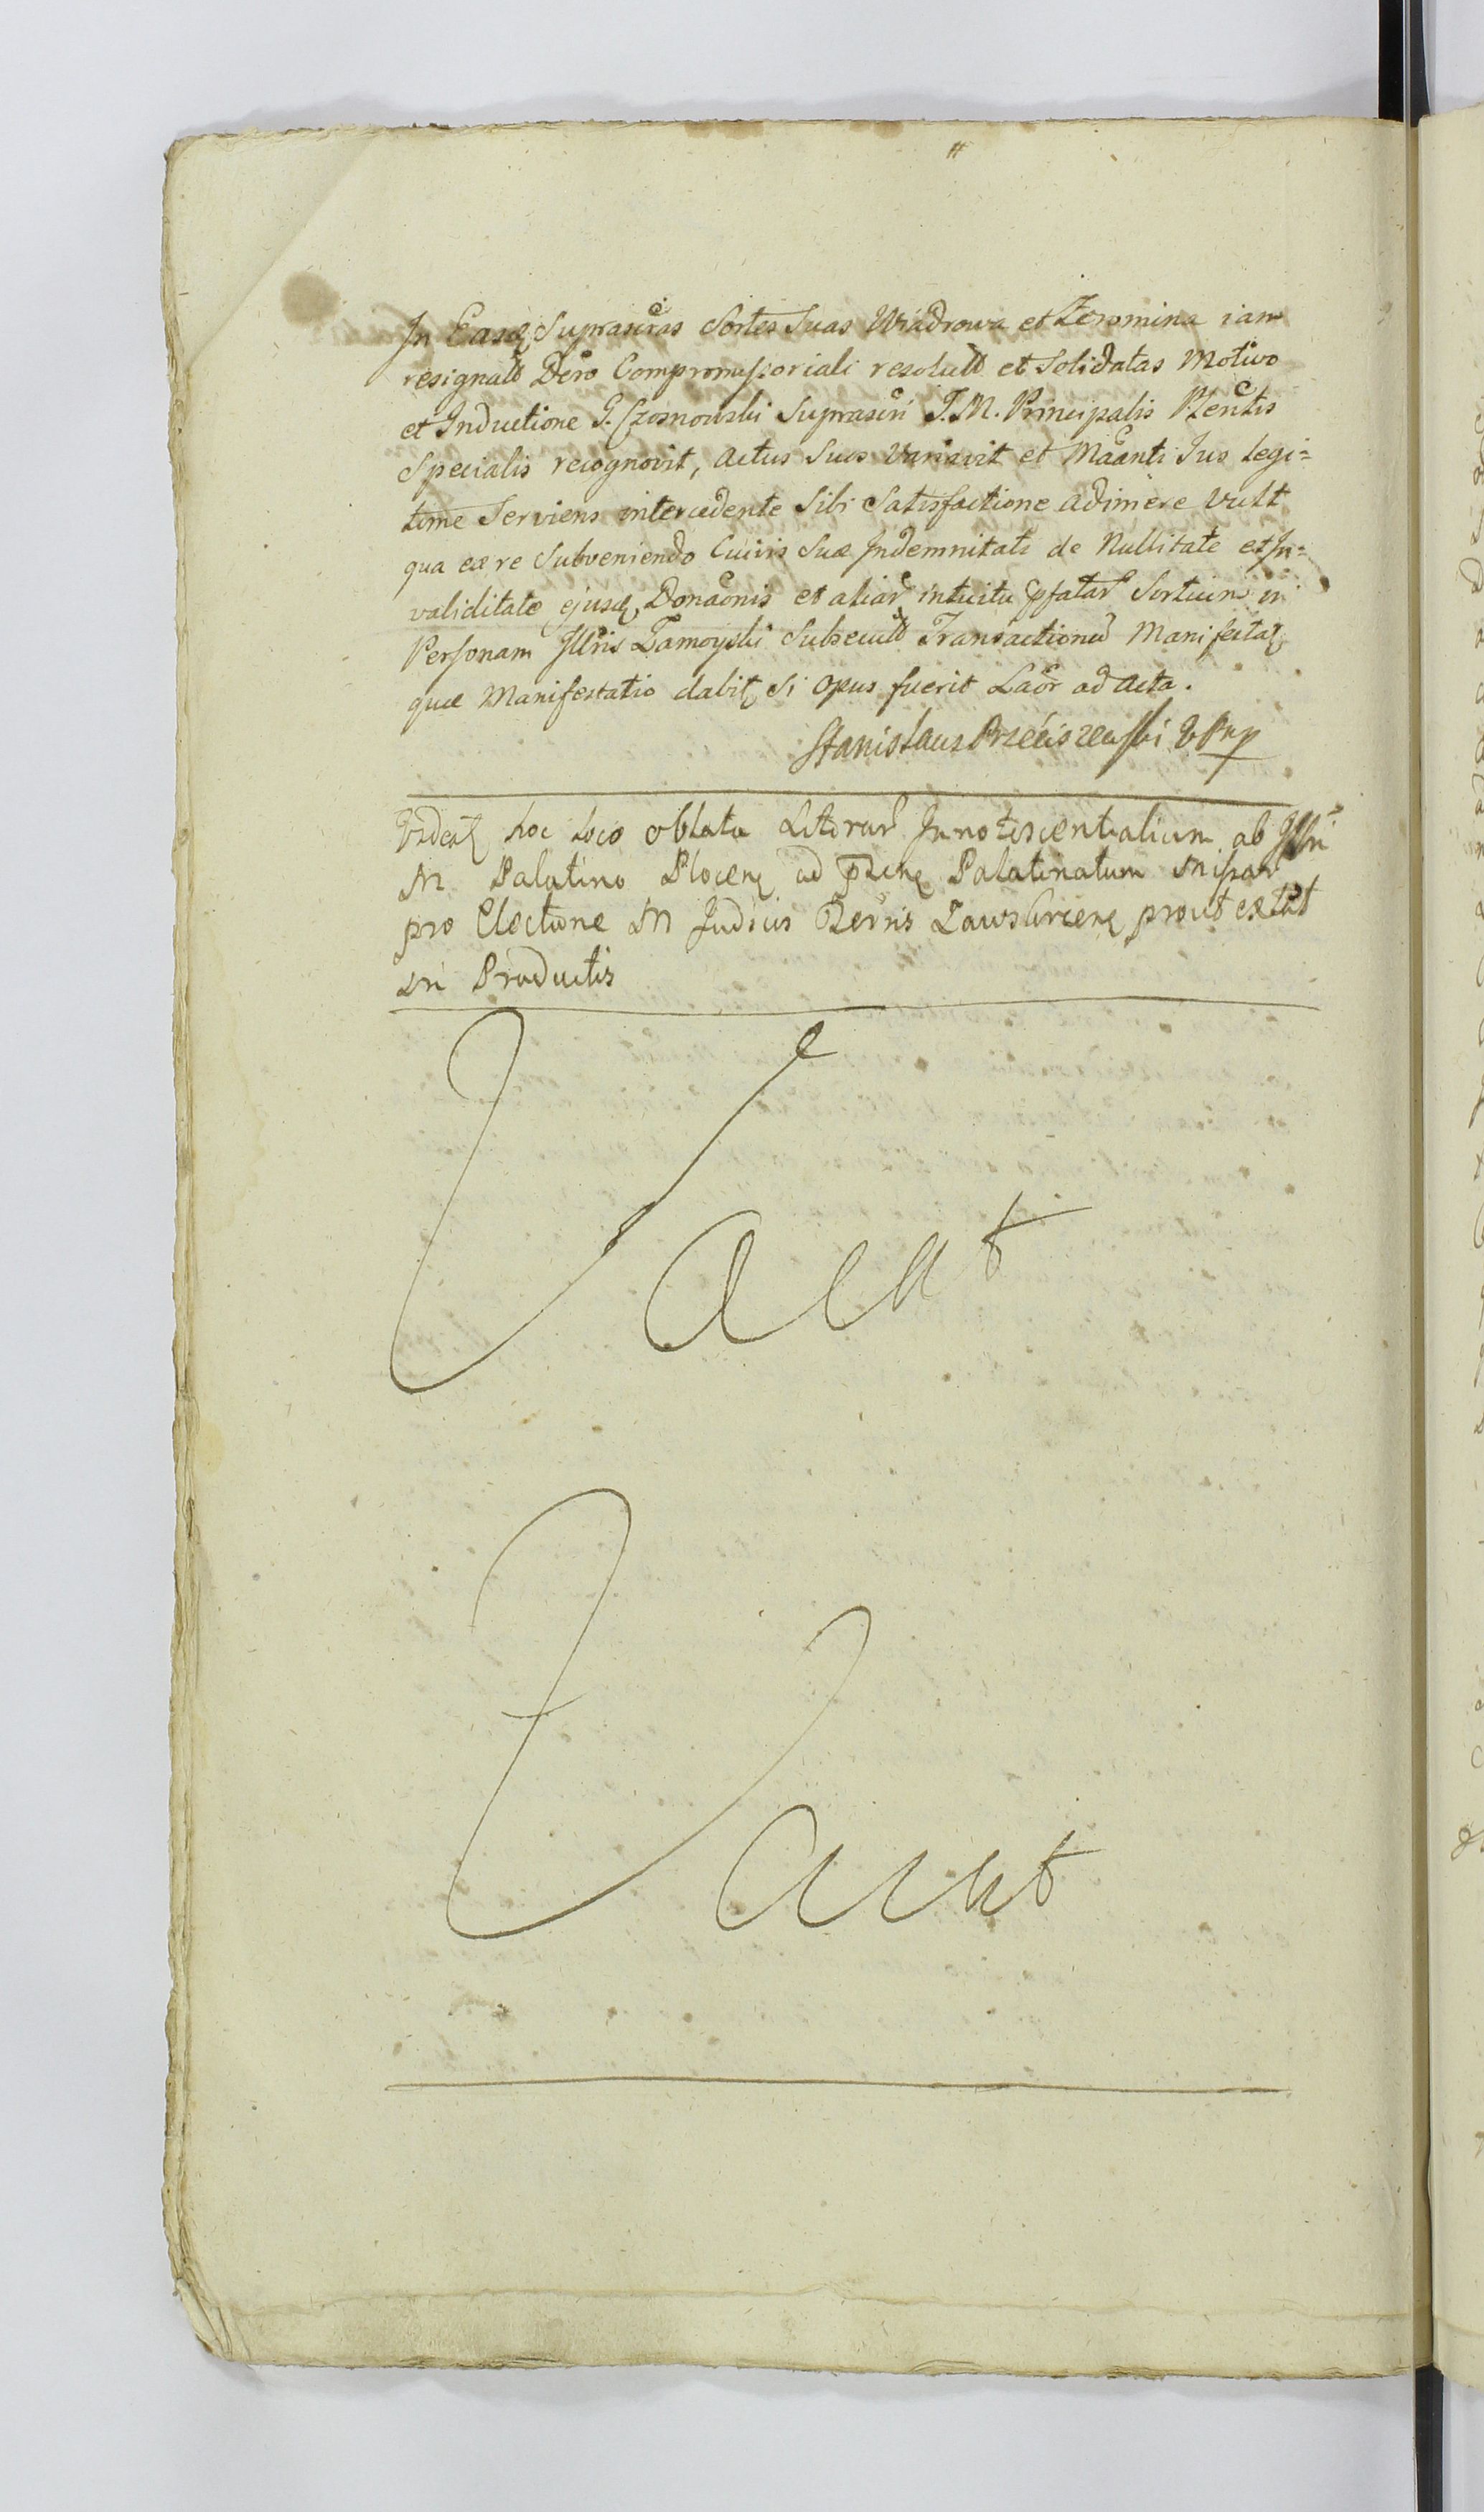 In Easq Suprascras Sortes Suas Wiadrowa et Zeromina iam
resignatt Dero Compromissoriali resolutt et Solidatas Motivo
et Inductione G. Czosnowski Suprascri J. M. Principalis Plentis
Specialis recognovit, Actus Suos Variavit et Maanti Jus Legi=
time Serviens intercedente Sibi Satisfactione adimere Vult
qua ex re Subveniendo Cuivis Suæ Indemnitati de Nullitate et In=
validitate ejusq Donaonis et aliar intuitu pfatar Sortium in
Personam Illris Zamoyski Subsecutt Transactionu Manifestat
quæ Manifestatio dabit Si Opus fuerit Laor ad Acta.
Stanislaus Przeciszewski
Videat hoc Loco oblata Literar Innotescentialium ab Illri
M Palatino Plocen ad Palatinatum missar
pro Electione M Judicis Terris Zawskrcen prout extat
in Productis
Vacat
Vacat